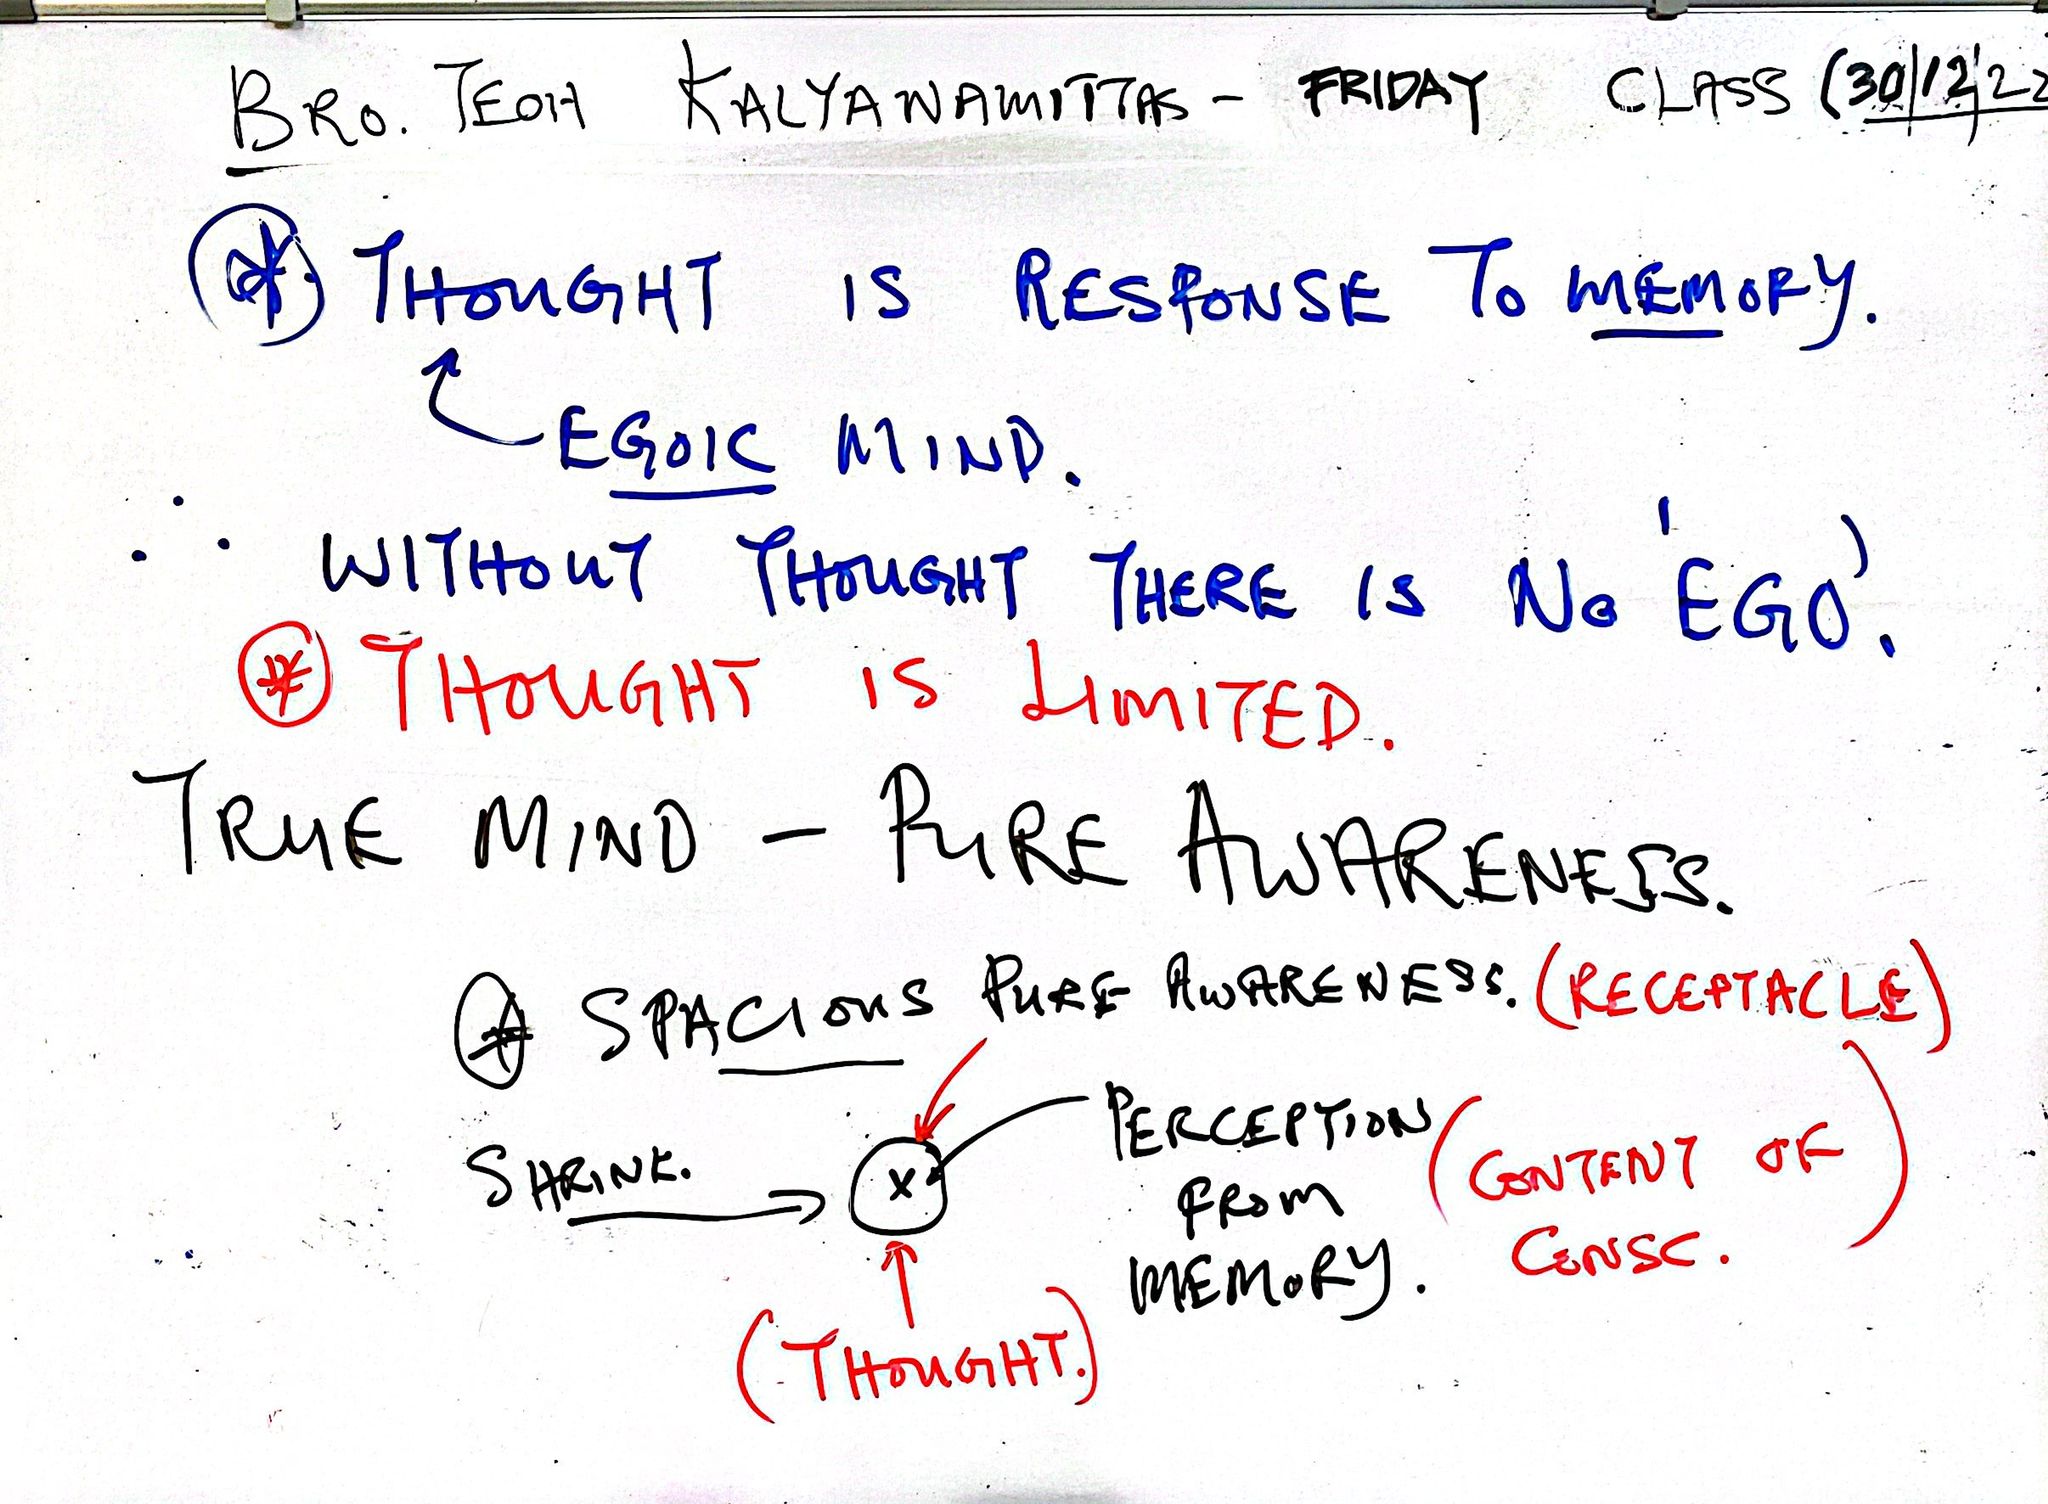 BRO. TEOH KALYANAMITTAS - FRIDAY CLASS (30/12/22
* THOUGHT IS RESPONSE TO MEMORY.
EGOIC MIND.
∴ WITHOUT THOUGHT THERE IS NO 'EGO'.
* THOUGHT IS LIMITED.
TRUE MIND - PURE AWARENESS.
* SPACIOUS PURE AWARENESS. (RECEPTACLE)
SHRINK. → X PERCEPTION FROM MEMORY. (CONTENT OF CONSC.)
(THOUGHT.)